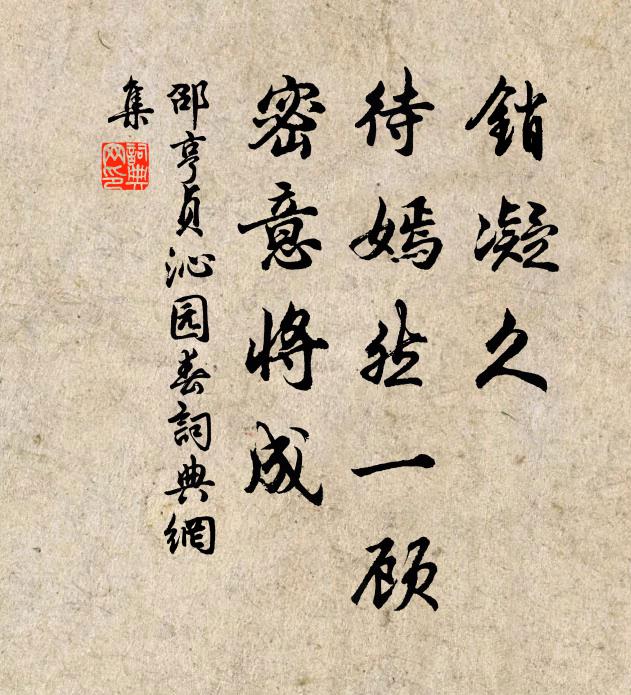 銷凝久
待嫣然一顾
密意將成
邵亨贞沁园春詞典網
集
詞典
网印